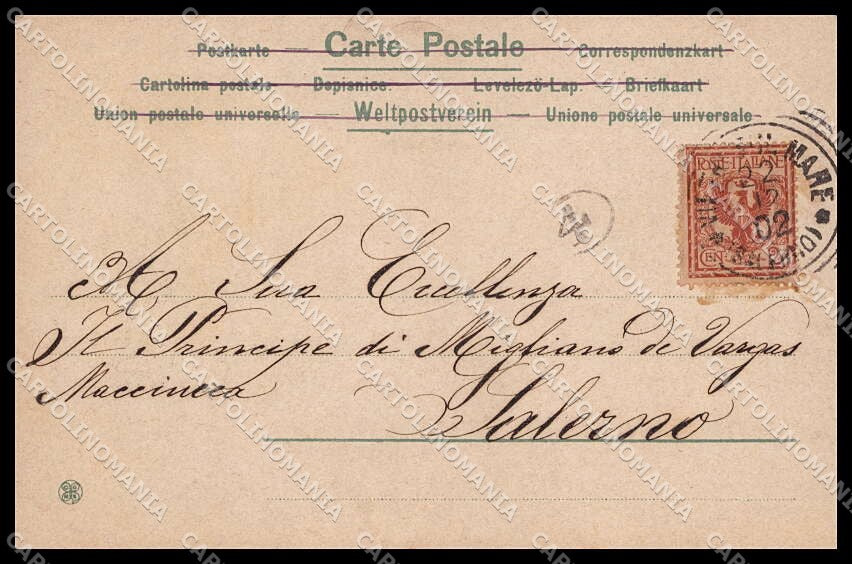 Postkarte — Carte Postale — Correspondenzkart
Cartolina postale. Dopisnice. Levelező-Lap. Briefkaart
Union postale universelle — Weltpostverein — Unione postale universale
POSTE ITALIANE
MARE
22
12
02
A Sua Eccellenza
Il Principe di Migliano de Vargas
Macciucca
Salerno
CARTOLINOMANIA